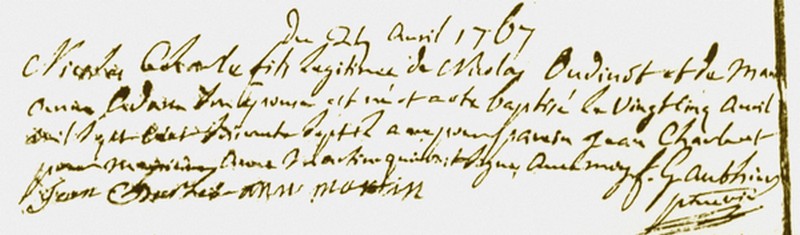 Du avril 1767
Nicolas Charle fils legitime de Nicolas Oudinot et de Marie
anne adam son epouse est né et a ete baptisé le vingt cinq avril
mil sept cent soixante sept a eu pour parain jean Charlot
pour maraine anne martin qui ont signe avec moy f. G. aubhin
jean anne martin